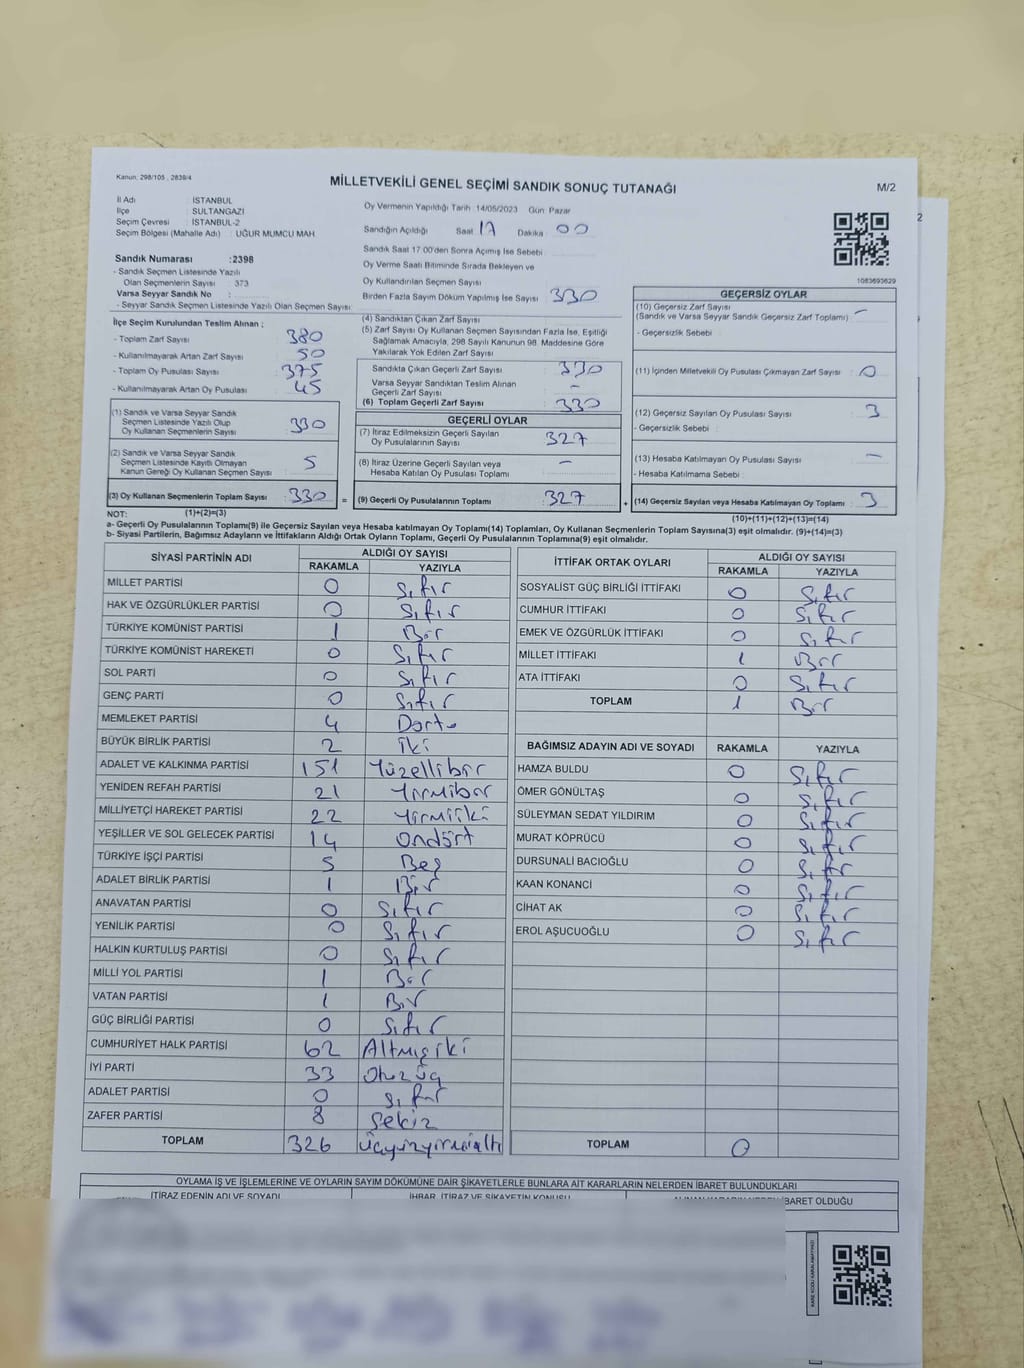 Kanun: 298/105 , 2839/4
MİLLETVEKİLİ GENEL SEÇİMİ SANDIK SONUÇ TUTANAĞI
M/2
2
İl Adı : İSTANBUL
İlçe : SULTANGAZİ
Seçim Çevresi : İSTANBUL-2
Seçim Bölgesi (Mahalle Adı) : UĞUR MUMCU MAH.
Oy Vermenin Yapıldığı Tarih :14/05/2023 Gün: Pazar
Sandığın Açıldığı Saat 17 Dakika : 00
Sandık Saat 17:00'den Sonra Açımış İse Sebebi :
Oy Verme Saati Bitiminde Sırada Bekleyen ve
Oy Kullandırılan Seçmen Sayısı
Birden Fazla Sayım Döküm Yapılmış İse Sayısı : 330
1083693629
Sandık Numarası :2398
- Sandık Seçmen Listesinde Yazılı
Olan Seçmenlerin Sayısı : 373
Varsa Seyyar Sandık No :
- Seyyar Sandık Seçmen Listesinde Yazılı Olan Seçmen Sayısı:
İlçe Seçim Kurulundan Teslim Alınan ;
- Toplam Zarf Sayısı : 380
- Kullanılmayarak Artan Zarf Sayısı : 50
- Toplam Oy Pusulası Sayısı : 375
- Kullanılmayarak Artan Oy Pusulası : 45
(1) Sandık ve Varsa Seyyar Sandık
Seçmen Listesinde Yazılı Olup
Oy Kullanan Seçmenlerin Sayısı : 330
(2) Sandık ve Varsa Seyyar Sandık
Seçmen Listesinde Kayıtlı Olmayan
Kanun Gereği Oy Kullanan Seçmen Sayısı : 5
(3) Oy Kullanan Seçmenlerin Toplam Sayısı : 330 =
(1)+(2)=(3)
(4) Sandıktan Çıkan Zarf Sayısı
(5) Zarf Sayısı Oy Kullanan Seçmen Sayısından Fazla İse, Eşitliği
Sağlamak Amacıyla, 298 Sayılı Kanunun 98. Maddesine Göre
Yakılarak Yok Edilen Zarf Sayısı
Sandıkta Çıkan Geçerli Zarf Sayısı : 330
Varsa Seyyar Sandıktan Teslim Alınan
Geçerli Zarf Sayısı : -
(6) Toplam Geçerli Zarf Sayısı : 330
GEÇERLİ OYLAR
(7) İtiraz Edilmeksizin Geçerli Sayılan
Oy Pusulalarının Sayısı : 327
(8) İtiraz Üzerine Geçerli Sayılan veya
Hesaba Katılan Oy Pusulası Toplamı : -
(9) Geçerli Oy Pusulalarının Toplamı : 327 +
GEÇERSİZ OYLAR
(10) Geçersiz Zarf Sayısı
(Sandık ve Varsa Seyyar Sandık Geçersiz Zarf Toplamı) : -
- Geçersizlik Sebebi :
(11) İçinden Milletvekili Oy Pusulası Çıkmayan Zarf Sayısı : 0
(12) Geçersiz Sayılan Oy Pusulası Sayısı : 3
- Geçersizlik Sebebi :
(13) Hesaba Katılmayan Oy Pusulası Sayısı : -
- Hesaba Katılmama Sebebi :
(14) Geçersiz Sayılan veya Hesaba Katılmayan Oy Toplamı : 3
(10)+(11)+(12)+(13)=(14)
NOT:
a- Geçerli Oy Pusulalarının Toplamı(9) ile Geçersiz Sayılan veya Hesaba katılmayan Oy Toplamı(14) Toplamları, Oy Kullanan Seçmenlerin Toplam Sayısına(3) eşit olmalıdır. (9)+(14)=(3)
b- Siyasi Partilerin, Bağımsız Adayların ve İttifakların Aldığı Ortak Oyların Toplamı, Geçerli Oy Pusulalarının Toplamına(9) eşit olmalıdır.
SİYASİ PARTİNİN ADI ALDIĞI OY SAYISI
RAKAMLA YAZIYLA
MİLLET PARTİSİ 0 Sıfır
HAK VE ÖZGÜRLÜKLER PARTİSİ 0 Sıfır
TÜRKİYE KOMÜNİST PARTİSİ 1 Bir
TÜRKİYE KOMÜNİST HAREKETİ 0 Sıfır
SOL PARTİ 0 Sıfır
GENÇ PARTİ 0 Sıfır
MEMLEKET PARTİSİ 4 Dört
BÜYÜK BİRLİK PARTİSİ 2 iki
ADALET VE KALKINMA PARTİSİ 151 Yüzellibir
YENİDEN REFAH PARTİSİ 21 Yirmibir
MİLLİYETÇİ HAREKET PARTİSİ 22 Yirmiiki
YEŞİLLER VE SOL GELECEK PARTİSİ 14 Ondört
TÜRKİYE İŞÇİ PARTİSİ 5 Beş
ADALET BİRLİK PARTİSİ 1 Bir
ANAVATAN PARTİSİ 0 Sıfır
YENİLİK PARTİSİ 0 Sıfır
HALKIN KURTULUŞ PARTİSİ 0 Sıfır
MİLLİ YOL PARTİSİ 1 Bir
VATAN PARTİSİ 1 Bir
GÜÇ BİRLİĞİ PARTİSİ 0 Sıfır
CUMHURİYET HALK PARTİSİ 62 Altmışiki
İYİ PARTİ 33 Otuzüç
ADALET PARTİSİ 0 Sıfır
ZAFER PARTİSİ 8 Sekiz
TOPLAM 326 Üçyüzyirmialtı
İTTİFAK ORTAK OYLARI ALDIĞI OY SAYISI
RAKAMLA YAZIYLA
SOSYALİST GÜÇ BİRLİĞİ İTTİFAKI 0 Sıfır
CUMHUR İTTİFAKI 0 Sıfır
EMEK VE ÖZGÜRLÜK İTTİFAKI 0 Sıfır
MİLLET İTTİFAKI 1 Bir
ATA İTTİFAKI 0 Sıfır
TOPLAM 1 Bir
BAĞIMSIZ ADAYIN ADI VE SOYADI RAKAMLA YAZIYLA
HAMZA BULDU 0 Sıfır
ÖMER GÖNÜLTAŞ 0 Sıfır
SÜLEYMAN SEDAT YILDIRIM 0 Sıfır
MURAT KÖPRÜCÜ 0 Sıfır
DURSUNALİ BACIOĞLU 0 Sıfır
KAAN KONANCİ 0 Sıfır
CİHAT AK 0 Sıfır
EROL AŞUCUOĞLU 0 Sıfır
TOPLAM 0
OYLAMA İŞ VE İŞLEMLERİNE VE OYLARIN SAYIM DÖKÜMÜNE DAİR ŞİKAYETLERLE BUNLARA AİT KARARLARIN NELERDEN İBARET BULUNDUKLARI
İTİRAZ EDENİN ADI VE SOYADI İHBAR, İTİRAZ VE ŞİKAYETİN KONUSU İBARET OLDUĞU